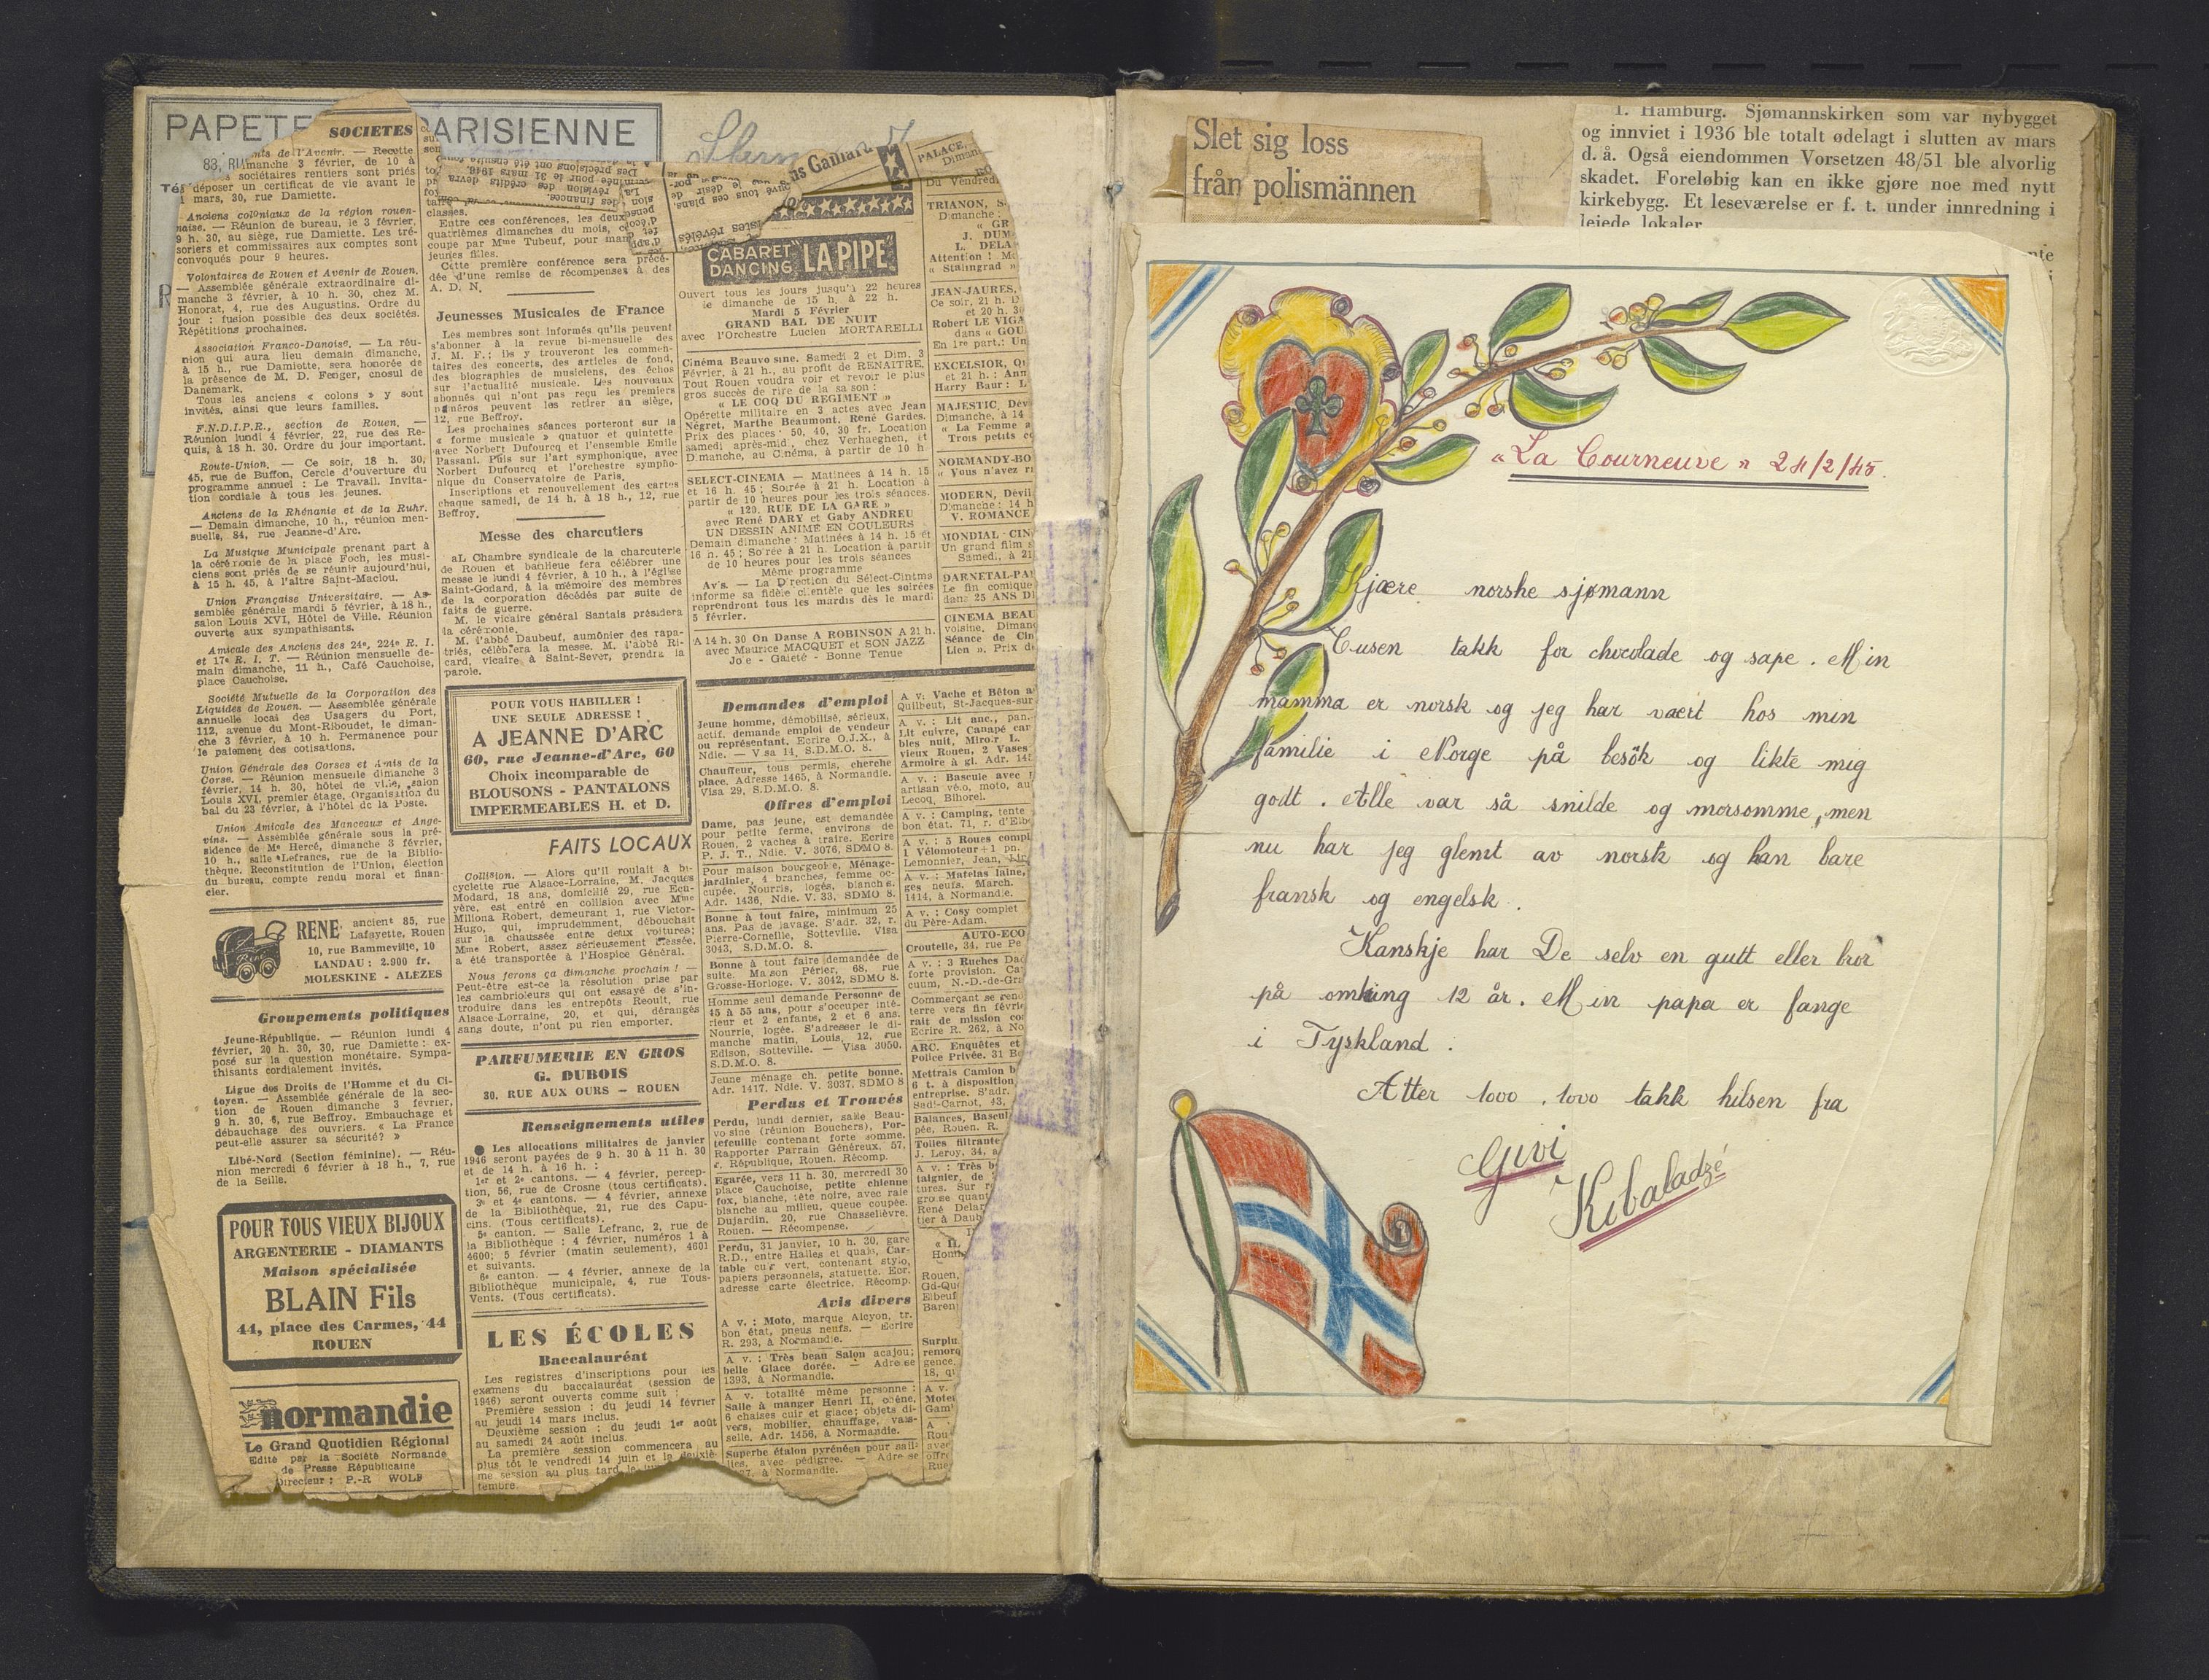 PAPETE
ARISIENNE
83, RU
SOCIETES
nts de l'Avenir. — Recette
manche 3 février, de 10 à
s sociétaires rentiers sont priés
déposer un certificat de vie avant le
1 mars, 30, rue Damiette.
Anciens coloniaux de la région rouen-
naise. — Réunion de bureau, le 3 février,
9 h. 30, au siège, rue Damiette. Les tré-
soriers et commissaires aux comptes sont
convoqués pour 9 heures.
Volontaires de Rouen et Avenir de Rouen.
— Assemblée générale extraordinaire di-
manche 3 février, à 10 h. 30, chez M.
Honorat, 4, rue des Augustins. Ordre du
jour : fusion possible des deux sociétés.
Répétitions prochaines.
Association Franco-Danoise. — La réu-
nion qui aura lieu demain dimanche,
à 15 h., rue Damiotte, sera honorée de
la présence de M. D. Fenger, chosul de
Danemark.
Tous les anciens « colons » y sont
invités, ainsi que leurs familles.
F.N.D.I.P.R., section de Rouen. —
Réunion lundi 4 février, 22, rue des Re-
quis, à 18 h. 30. Ordre du jour important.
Route-Union. — Ce soir, 18 h. 30,
45, rue de Buffon, Cercle d'ouverture du
programme annuel : Le Travail. Invita-
tion cordiale à tous les jeunes.
Anciens de la Rhénanie et de la Ruhr.
— Demain dimanche, 10 h., réunion men-
suelle, 84, rue Jeanne-d'Arc.
La Musique Municipale prenant part à
la cérémonie de la place Foch, les musi-
ciens sont priés de se réunir aujourd'hui,
à 15 h. 45, à l'aître Saint-Maclou.
Union Française Universitaire. — As-
semblée générale mardi 5 février, à 18 h.,
salon Louis XVI, Hôtel de Ville. Réunion
ouverte aux sympathisants.
Amicale des Anciens des 24e, 224e R. I.
et 17e R. I. T. — Réunion mensuelle de-
main dimanche, 11 h., Café Cauchoise,
place Cauchoise.
Société Mutuelle de la Corporation des
Liquides de Rouen. — Assemblée générale
annuelle local des Usagers du Port,
112, avenue du Mont-Riboudet, le diman-
che 3 février, à 10 h. Permanence pour
le paiement des cotisations.
Union Générale des Corses et Amis de la
Corse. — Réunion mensuelle dimanche 3
février, 14 h. 30, hôtel de ville, salon
Louis XVI, premier étage. Organisation du
bal du 23 février, à l'hôtel de la Poste.
Union Amicale des Manceaux et Ange-
vins. — Assemblée générale sous la pré-
sidence de Me Hercé, dimanche 3 février,
10 h., salle Lefrancs, rue de la Biblio-
thèque. Reconstitution de l'Union, élection
du bureau, compte rendu moral et finan-
cier.
RENE
ancient 85, rue
Lafayette, Rouen
10, rue Bammeville, 10
LANDAU : 2.900 fr.
MOLESKINE - ALEZES
Groupements politiques
Jeune-République. — Réunion lundi 4
février, 20 h. 30, 30, rue Damiette : ex-
posé sur la question monétaire. Sympa-
thisants cordialement invités.
Ligue des Droits de l'Homme et du Ci-
toyen. — Assemblée générale de la sec-
tion de Rouen dimanche 3 février,
9 h. 30, 6, rue Beffroy. Embauchage et
débauchage des ouvriers. « La France
peut-elle assurer sa sécurité? »
Libé-Nord (Section féminine). — Réu-
nion mercredi 6 février à 18 h., 7, rue
de la Seille.
POUR TOUS VIEUX BIJOUX
ARGENTERIE - DIAMANTS
Maison spécialisée
BLAIN Fils
44, place des Carmes, 44
ROUEN
normandie
Le Grand Quotidien Régional
Edité par la Société Normande
de Presse Républicaine
Directeur : P.-R WOLF
classes.
Entre ces conférences, les deux
quatrièmes dimanches du mois, co
coupe par Mme Tubeuf, pour mam
jeunes filles.
Cette première conférence sera précé-
dée d'une remise de récompenses à des
A. D. N.
Jeunesses Musicales de France
Les membres sont informés qu'ils peuvent
s'abonner à la revue bi-mensuelle des
J. M. F.; ils y trouveront les commen-
taires des concerts, des articles de fond,
des biographies de musiciens, des échos
sur l'actualité musicale. Les nouveaux
abonnés qui n'ont pas reçu les premiers
numéros peuvent les retirer au siège,
12, rue Beffroy.
Les prochaines séances porteront sur la
« forme musicale » quatuor et quintette
avec Norbert Dufourcq et l'ensemble Emile
Passani. Puis sur l'art symphonique, avec
Norbert Dufourcq et l'orchestre sympho-
nique du Conservatoire de Paris.
Inscriptions et renouvellement des cartes
chaque samedi, de 14 h. à 18 h., 12, rue
Beffroy.
Messe des charcutiers
aL Chambre syndicale de la charcuterie
de Rouen et banlieue fera célébrer une
messe le lundi 4 février, à 10 h., à l'église
Saint-Godard, à la mémoire des membres
de la corporation décédés par suite de
faits de guerre.
M. le vicaire général Santais présidera
la cérémonie.
M. l'abbé Daubeuf, aumônier des rapa-
triés, célébrera la messe. M. l'abbé Ri-
card, vicaire à Saint-Sever, prendra la
parole.
POUR VOUS HABILLER !
UNE SEULE ADRESSE !
A JEANNE D'ARC
60, rue Jeanne-d'Arc, 60
Choix incomparable de
BLOUSONS - PANTALONS
IMPERMEABLES H. et D.
FAITS LOCAUX
Collision. — Alors qu'il roulait à bi-
cyclette rue Alsace-Lorraine, M. Jacques
Modard, 18 ans, domicilié 29, rue Ecu-
yère, est entré en collision avec Mme
Miliona Robert, demeurant 1, rue Victor-
Hugo, qui, imprudemment, débouchait
sur la chaussée entre deux voitures;
Mme Robert, assez sérieusement blessée,
a été transportée à l'Hospice Général.
Nous ferons ça dimanche prochain ! —
Peut-être est-ce la résolution prise par
les cambrioleurs qui ont essayé de s'in-
troduire dans les entrepôts Reoult, rue
Alsace-Lorraine, 20, et qui, dérangés
sans doute, n'ont pu rien emporter.
PARFUMERIE EN GROS
G. DUBOIS
30, RUE AUX OURS — ROUEN
Renseignements utiles
● Les allocations militaires de janvier
1946 seront payées de 9 h. 30 à 11 h. 30
et de 14 h. à 16 h. :
1er et 2e cantons. — 4 février, percep-
tion, 56, rue de Crosne (tous certificats).
3e et 4e cantons. — 4 février, annexe
de la Bibliothèque, 21, rue des Capu-
cins. (Tous certificats).
5e canton. — Salle Lefranc, 2, rue de
la Bibliothèque : 4 février, numéros 1 à
4600; 5 février (matin seulement), 4601
et suivants.
6e canton. — 4 février, annexe de la
Bibliothèque municipale, 4, rue Tous-
Vents. (Tous certificats).
LES ÉCOLES
Baccalauréat
Les registres d'inscriptions pour les
examens du baccalauréat (session de
1946) seront ouverts comme suit :
Première session : du jeudi 14 février
au jeudi 14 mars inclus.
Deuxième session : du jeudi 1er août
au samedi 24 août inclus.
La première session commencera au
plus tôt le vendredi 14 juin et la deuxiè-
me session au plus tard le
tembre.
us Gaillard
CABARET
DANCING
"LA PIPE"
Ouvert tous les jours jusqu'à 22 heures
le dimanche de 15 h. à 22 h.
Mardi 5 Février
GRAND BAL DE NUIT
avec l'Orchestre Lucien MORTARELLI
Cinéma Beauvoisine. Samedi 2 et Dim. 3
Février, à 21 h., au profit de RENAITRE,
Tout Rouen voudra voir et revoir le plus
gros succès de rire de la saison :
« LE COQ DU REGIMENT »
Opérette militaire en 3 actes avec Jean
Négret, Marthe Beaumont, René Gardes.
Prix des places : 50, 40, 30 fr. Location
samedi après-mid., chez Verhaeghen, et
Dimanche, au Cinéma, à partir de 10 h
SELECT-CINEMA — Matinées à 14 h. 15
et 16 h. 45; Soirée à 21 h. Location à
partir de 10 heures pour les trois séances.
« 120, RUE DE LA GARE »
avec René DARY et Gaby ANDREU
UN DESSIN ANIME EN COULEURS
Demain dimanche : Matinées à 14 h. 15 et
16 h. 45 ; Soirée à 21 h. Location à partir
de 10 heures pour les trois séances
Même programme
Avis. — La Direction du Sélect-Cinéma
informe sa fidèle clientèle que les soirées
reprendront tous les mardis dès le mardi
5 février.
A 14 h. 30 On Danse A ROBINSON A 21 h.
avec Maurice MACQUET et SON JAZZ
Joie - Gaieté - Bonne Tenue
Demandes d'emploi
Jeune homme, démobilisé, sérieux,
actif, demande emploi de vendeur
ou représentant. Ecrire O.J.X., à
Ndie. — Visa 14, S.D.M.O. 8.
Chauffeur, tous permis, cherche
place. Adresse 1465, à Normandie.
Visa 29, S.D.M.O. 8.
Offres d'emploi
Dame, pas jeune, est demandée
pour petite ferme, environs de
Rouen, 2 vaches à traire. Ecrire
P. J. T., Ndie. V. 3076, SDMO 8.
Pour maison bourgeoise, Ménage-
jardinier, 4 branches, femme oc-
cupée. Nourris, logés, blanchis.
Adr. 1436, Ndie. V. 33, SDMO 8.
Bonne à tout faire, minimum 25
ans. Pas de lavage. S'adr. 32, r.
Pierre-Corneille, Sotteville. Visa
3043, S.D.M.O. 8.
Bonne à tout faire demandée de
suite. Maison Périer, 68, rue
Grosse-Horloge. V. 3042, SDMO 8.
Homme seul demande Personne de
45 à 55 ans, pour s'occuper inté-
rieur et 2 enfants, 2 et 6 ans.
Nourrie, logée. S'adresser le di-
manche matin, Louis, 12, rue
Edison, Sotteville. — Visa 3050,
S.D.M.O. 8.
Jeune ménage ch. petite bonne.
Adr. 1417, Ndie. V. 3037, SDMO 8
Perdus et Trouvés
Perdu, lundi dernier, salle Beau-
voisine (réunion Bouchers), Por-
tefeuille contenant forte somme.
Rapporter Parrain Généreux, 57,
r. République, Rouen. Récomp.
Egarée, vers 11 h. 30, mercredi 30
place Cauchoise, petite chienne
fox, blanche, tête noire, avec raie
blanche au milieu, queue coupée.
Dujardin, 20, rue Chasselièvre.
Rouen. — Récompense.
Perdu, 31 janvier, 10 h. 30, gare
R.D., entre Halles et quais, Car-
table cuir vert, contenant stylo,
papiers personnels, statuette. Ecr.
adresse carte électrice. Récomp.
Avis divers
A v. : Moto, marque Alcyon, tr.
bon état, pneus neufs. — Ecrire
R. 293, à Normandie.
A v. : Très beau Salon acajou;
belle Glace dorée. — Adresse
1393, à Normandie.
A v. totalité même personne :
Salle à manger Henri II, chêne,
6 chaises cuir et glace; objets di-
vers, mobilier, chauffage, vais-
selle. Adr. 1456, à Normandie.
Superbe étalon pyrénéen pour sail-
lies, avec pédigree. — Adresse
à Normandie.
PALACE,
Dimanc
Du Vendredi
TRIANON, S-
Dimanche :
« GR
J. DUM
L. DELA
Attention ! Me
« Stalingrad »
JEAN-JAURES,
Ce soir, 21 h. D
et 20 h. 30
Robert LE VIGA
dans « GOU
En 1re part.: Un
EXCELSIOR, Qu
et 21 h. : Ann
Harry Baur : L
MAJESTIC, Dév
Dimanche, à 14
« La Femme a
Trois petits co
NORMANDY-BO
« Vous n'avez ri
MODERN, Dévil
Dimanche : 14 h
V. ROMANCE
MONDIAL-CIN
Un grand film s
Samedi, à 21
DARNETAL-PA
Le fin comique
dans 25 ANS D
CINEMA BEAU
voisine, Diman
Séance de Cin
Lien », Prix d
A v: Vache et Béton a
Quilbeut, St-Jacques-sur
A v. : Lit anc., pan.
Lit cuivre, Canapé car
bles nuit, Miroir L.
vieux Rouen, 2 Vases
Armoire à gl. Adr. 145
A v. : Bascule avec
artisan vélo, moto, au
Lecoq, Bihorel.
A v. : Camping, tente
bon état. 71, r. d'Elbe
A v. : 5 Roues compl
1 Vélomoteur+1 pn.
Lemonnier, Jean,
A v. : Matelas laine,
ges neufs. March.
1414, à Normandie.
A v. : Cosy complet
du Père-Adam.
AUTO-ECO
Croutelle, 34, rue Pe
A v. : 3 Ruches Dad
forte provision. Ca
cuum, N.-D.-de-Gr
Commerçant se rend
terre vers fin févrie
rait de mission co
Ecrire R. 262, à No
ARC. Enquêtes et
Police Privée. 31 B
Mettrais Camion b
6 t. à disposition,
entreprise. S'adr.
Sadi-Carnot, 43,
Balances, Bascul
pée, Rouen. R.
Toiles filtrante
J. Leroy, 34, a
A v. : Très b
taignier, de
tures. Sur r
grosse quant
René Delar
tier à Daub
Rouen,
Gd-Qu
Elbeuf
Baren
Surplu
remorq
gence.
18, qu
Slet sig loss
från polismännen
1. Hamburg. Sjømannskirken som var nybygget
og innviet i 1936 ble totalt ødelagt i slutten av mars
d. å. Også eiendommen Vorsetzen 48/51 ble alvorlig
skadet. Foreløbig kan en ikke gjøre noe med nytt
kirkebygg. Et leseværelse er f. t. under innredning i
leiede lokaler
«La Courneuve» 24/2/45.
Kjære norske sjømann
Tusen takk for chocolade og sape. Min
mamma er norsk og jeg har vaert hos min
familie i Norge på besök og likte mig
godt. Alle var så snilde og morsomme, men
nu har jeg glemt av norsk og kan bare
fransk og engelsk.
Kanskje har De selv en gutt eller bror
på omkring 12 år. Min papa er fange
i Tyskland.
Atter 1000.1000 takk hilsen fra
Givi
Kobaladzé